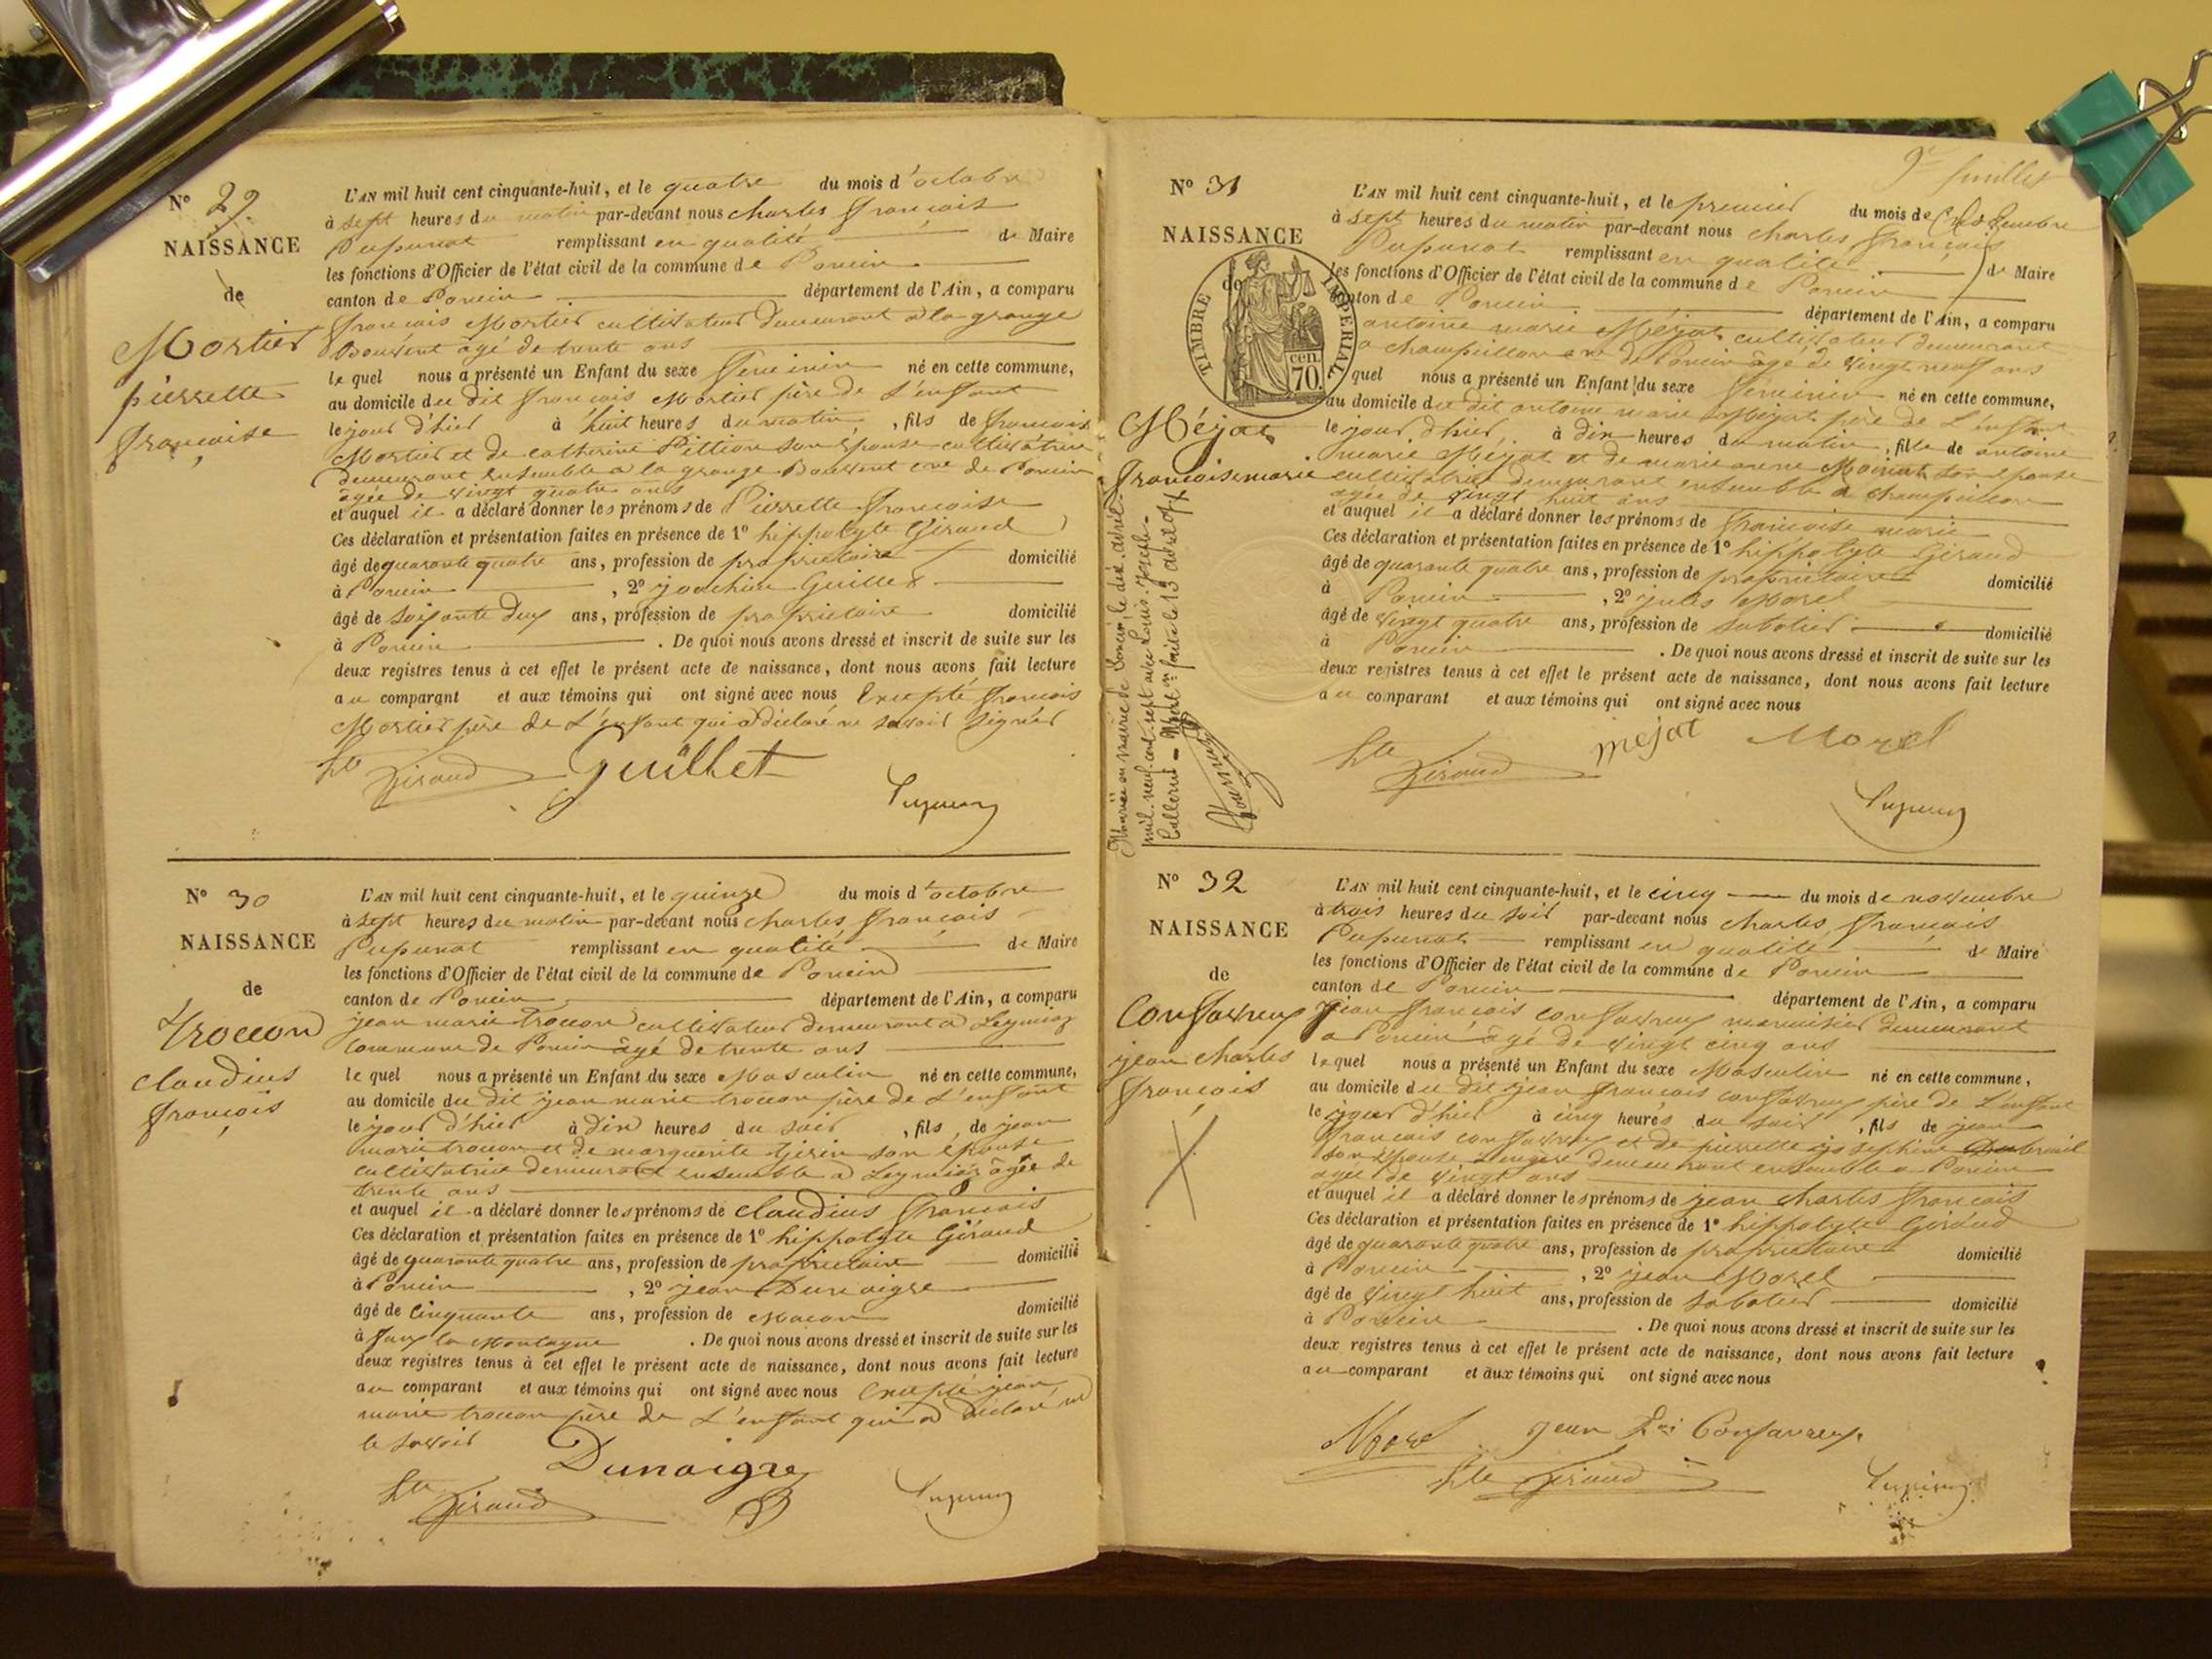 N° 29
NAISSANCE
de
Mortier
pierrette
françoise
L'AN mil huit cent cinquante-huit, et le quatre du mois d'octobre
à sept heures du matin par-devant nous charles françois
Pupunat remplissant en qualité de Maire
les fonctions d'Officier de l'état civil de la commune de Poncin
canton de Poncin département de l'Ain, a comparu
françois Mortier cultivateur demeurant a la grange
âgé de trente ans
lequel nous a présenté un Enfant du sexe feminin né en cette commune,
au domicile du dit françois Mortier père de l'enfant
le jour d'hier à huit heures du matin, fils de françois
Mortier et de catherine Pittion son épouse cultivatrice
demeurant ensemble a la grange de Poncin
âgée de vingt quatre ans
et auquel il a déclaré donner les prénoms de Pierrette françoise
Ces déclaration et présentation faites en présence de 1° hippolyte Giraud
âgé de quarante quatre ans, profession de propriétaire domicilié
à Poncin, 2° joachim Guillet
âgé de soixante deux ans, profession de propriétaire domicilié
à Poncin. De quoi nous avons dressé et inscrit de suite sur les
deux registres tenus à cet effet le présent acte de naissance, dont nous avons fait lecture
au comparant et aux témoins qui ont signé avec nous Excepté françois
Mortier père de l'enfant qui a déclaré ne savoir signer
hte Giraud Guillet
N° 30
NAISSANCE
de
trocon
claudius
françois
L'AN mil huit cent cinquante-huit, et le quinze du mois d'octobre
à sept heures du matin par-devant nous charles françois
Pupunat remplissant en qualité de Maire
les fonctions d'Officier de l'état civil de la commune de Poncin
canton de Poncin département de l'Ain, a comparu
jean marie trocon cultivateur demeurant a Leymiaz
commune de Poncin âgé de trente ans
lequel nous a présenté un Enfant du sexe Masculin né en cette commune,
au domicile du dit jean marie trocon père de l'enfant
le jour d'hier à dix heures du soir, fils de jean
marie trocon et de marguerite son épouse
cultivatrice demeurant ensemble a Leymiaz âgée de
trente ans
et auquel il a déclaré donner les prénoms de claudius françois
Ces déclaration et présentation faites en présence de 1° hippolyte Giraud
âgé de quarante quatre ans, profession de propriétaire domicilié
à Poncin, 2° jean Dunoigre
âgé de cinquante ans, profession de Macon domicilié
à la Montagne. De quoi nous avons dressé et inscrit de suite sur les
deux registres tenus à cet effet le présent acte de naissance, dont nous avons fait lecture
au comparant et aux témoins qui ont signé avec nous Excepté jean
marie trocon père de l'enfant qui a déclaré ne
le savoir
Dunoigre
hte Giraud
9e feuillet
N° 31
NAISSANCE
de
TIMBRE IMPERIAL
70 cen.
Méjat
françoise marie
Mariée en mairie de Poncin, le dix avril
mil neuf cent sept avec Louis
L'AN mil huit cent cinquante-huit, et le premier du mois de
à sept heures du matin par-devant nous charles françois
Pupunat remplissant en qualité de Maire
les fonctions d'Officier de l'état civil de la commune de Poncin
canton de Poncin département de l'Ain, a comparu
antoine marie Méjat cultivateur demeurant
a champeillon cne de Poncin âgé de vingt neuf ans
lequel nous a présenté un Enfant du sexe féminin né en cette commune,
au domicile du dit antoine marie Méjat père de l'enfant
le jour d'hier, à dix heures du matin, fille de antoine
marie Méjat et de marie anne son épouse
cultivatrice demeurant ensemble a champeillon
âgée de vingt huit ans
et auquel il a déclaré donner les prénoms de françoise marie
Ces déclaration et présentation faites en présence de 1° hippolyte Giraud
âgé de quarante quatre ans, profession de propriétaire domicilié
à Poncin, 2° jules Morel
âgé de vingt quatre ans, profession de sabotier domicilié
à Poncin. De quoi nous avons dressé et inscrit de suite sur les
deux registres tenus à cet effet le présent acte de naissance, dont nous avons fait lecture
au comparant et aux témoins qui ont signé avec nous
hte Giraud mejat Morel
N° 32
NAISSANCE
de
Confavreux
jean charles
françois
L'AN mil huit cent cinquante-huit, et le cinq du mois de novembre
à trois heures du soir par-devant nous charles françois
Pupunat remplissant en qualité de Maire
les fonctions d'Officier de l'état civil de la commune de Poncin
canton de Poncin département de l'Ain, a comparu
jean françois confavreux menuisier demeurant
a Poncin âgé de vingt cinq ans
lequel nous a présenté un Enfant du sexe Masculin né en cette commune,
au domicile du dit jean françois confavreux père de l'enfant
le jour d'hier à cinq heures du soir, fils de jean
françois confavreux et de pierrette josephine Dubreuil
son épouse Lingère demeurant ensemble a Poncin
agée de vingt ans
et auquel il a déclaré donner les prénoms de jean charles françois
Ces déclaration et présentation faites en présence de 1° hippolyte Giraud
âgé de quarante quatre ans, profession de propriétaire domicilié
à Poncin, 2° jean Morel
âgé de vingt huit ans, profession de sabotier domicilié
à Poncin. De quoi nous avons dressé et inscrit de suite sur les
deux registres tenus à cet effet le présent acte de naissance, dont nous avons fait lecture
au comparant et aux témoins qui ont signé avec nous
Morel jean fois Confavreux
hte Giraud